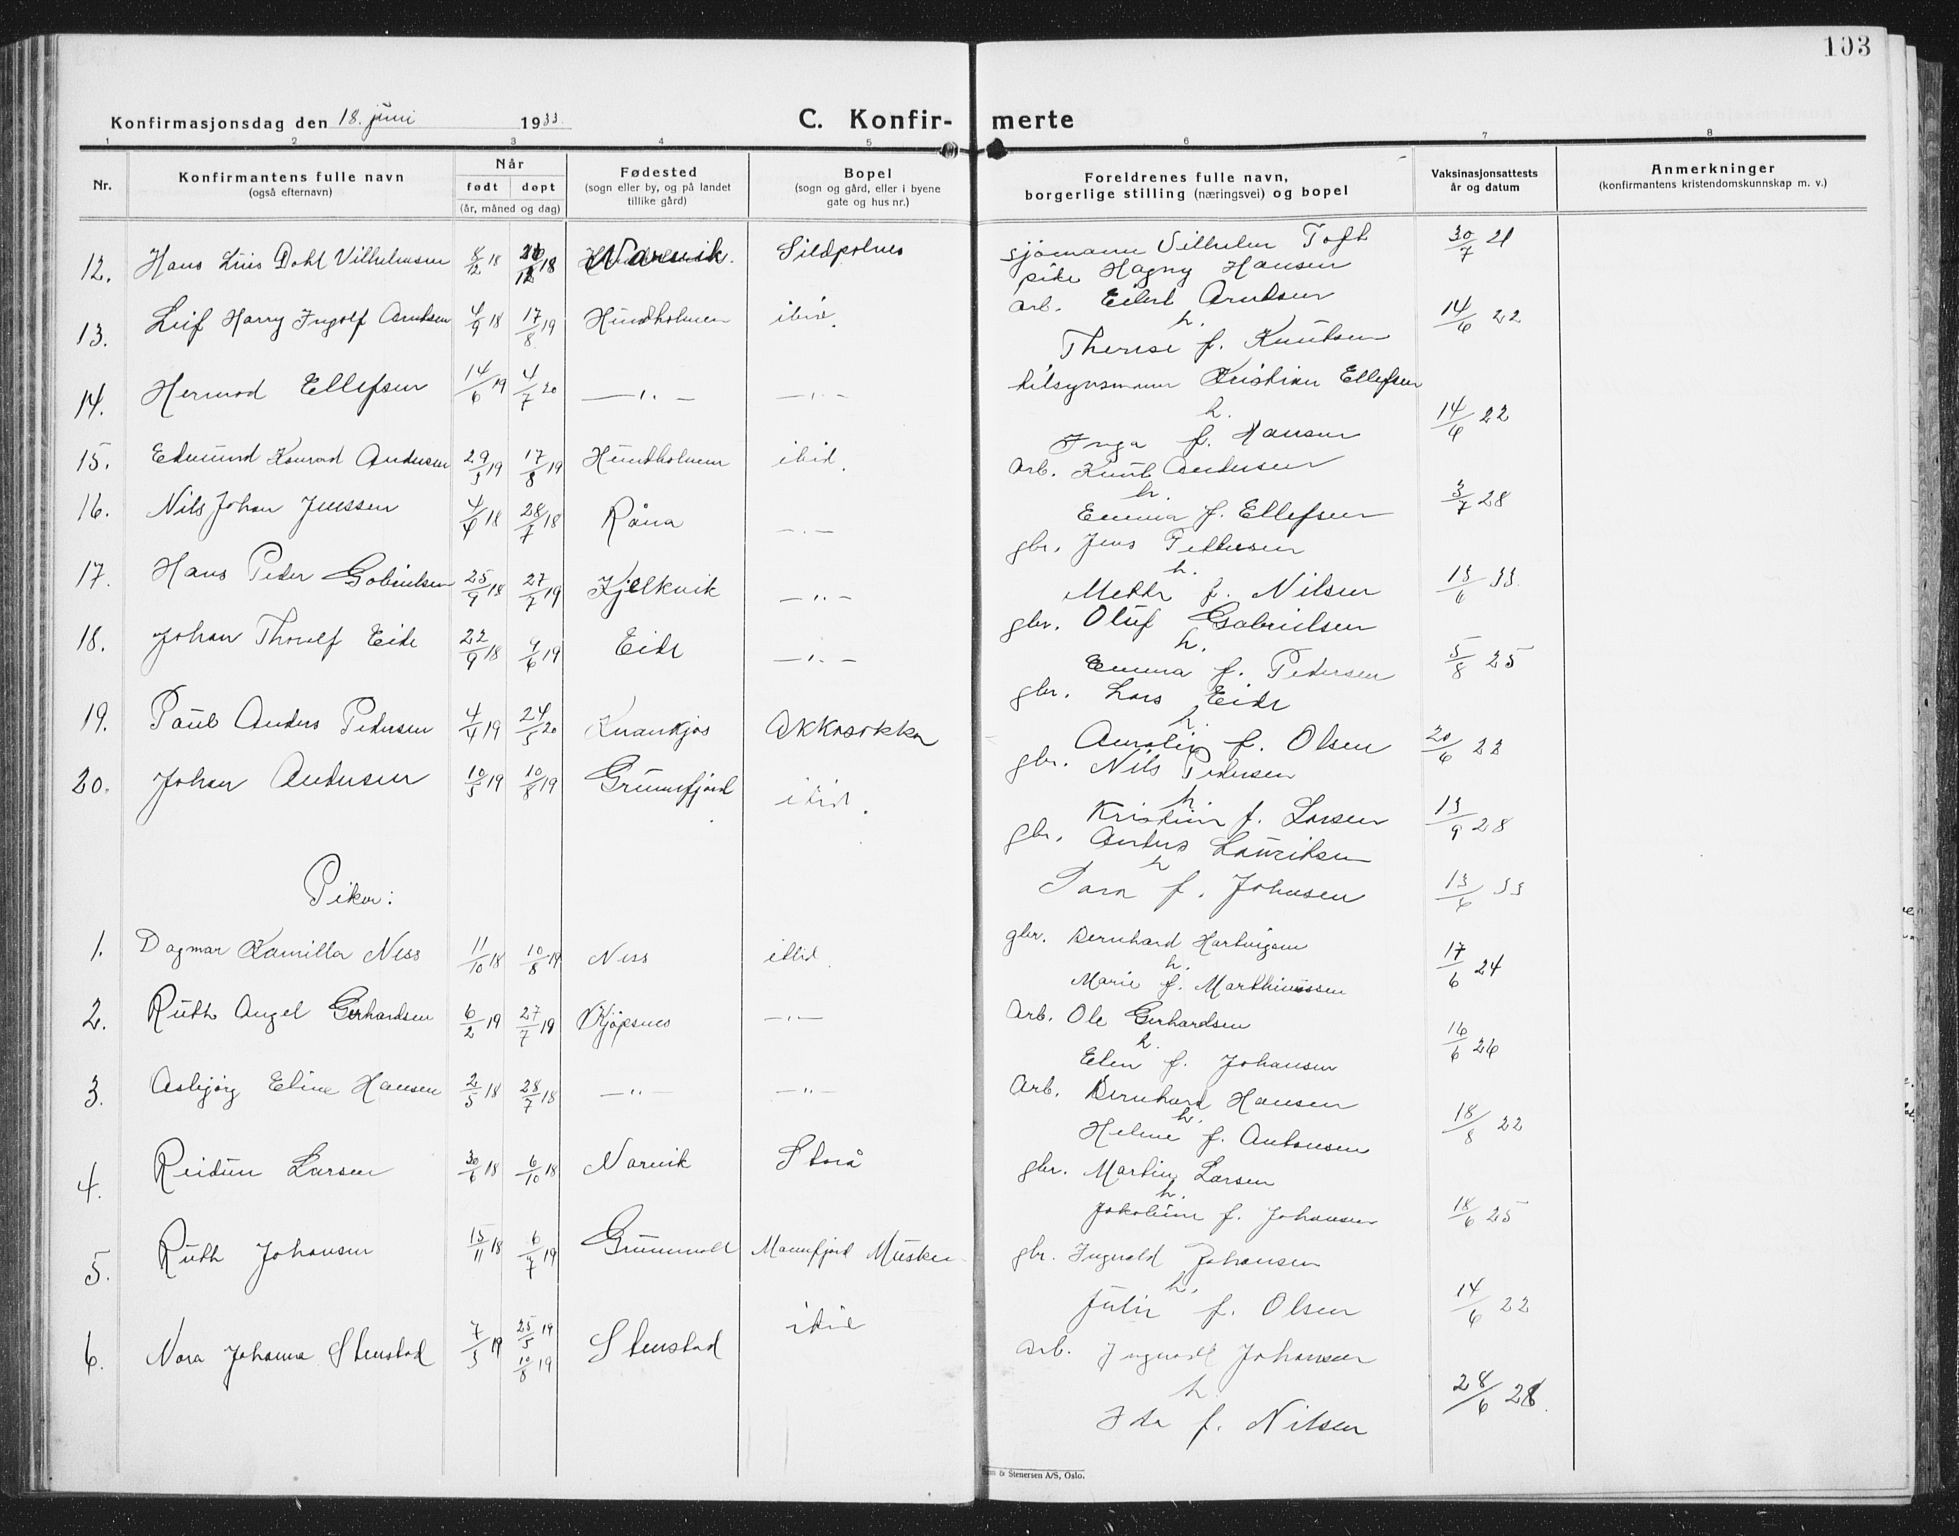 103
Konfirmasjonsdag den 18. juni 1933
C. Konfirmerte
1 2 3 4 5 6 7 8
Nr.
Konfirmantens fulle navn
(også efternavn)
Når
født døpt
(år, måned og dag)
Fødested
(sogn eller by, og på landet
tillike gård)
Bopel
(sogn og gård, eller i byene
gate og hus nr.)
Foreldrenes fulle navn,
borgerlige stilling (næringsvei) og bopel
Vaksinasjonsattests
år og datum
Anmerkninger
(konfirmantens kristendomskunnskap m. v.)
12. Hans Dahl Vilhelmsen 8/12 18 Narvik. Sildpolnes sjömann Vilhelm Toft 30/7 21
pike Hagny Hansen
13. Leif Harry Ingolf Arntsen 4/9 18 17/8 19 Hundholmen ibid. arb. Eilert Arntsen 14/6 22
h.
Therese f. Knutsen
14. Hermod Ellefsen 14/6 19 4/7 20 —"— —"— tilsynsmann Kristian Ellefsen 14/6 22
h.
Inga f. Hansen
15. Edmund Konrad Andersen 29/3 19 17/8 19 Hundholmen ibid. arb. Knut Andersen 3/7 28
h.
Emma f. Ellefsen
16. Nils Johan Jenssen 4/6 18 28/7 18 Råna —"— gbr. Jens Pettersen 13/6 33
h.
Mette f. Nilsen
17. Hans Peder Gabrielsen 25/9 18 27/7 19 Kjelkvik —"— gbr. Oluf Gabrielsen 5/8 25
h.
Emma f. Pedersen
18. Johan Thoralf Eide 22/9 18 9/6 19 Eide —"— gbr. Lars Eide 20/6 22
h.
Amalie f. Olsen
19. Paul Anders Pedersen 4/4 19 24/5 20 Kvankjos Akkasokka gbr. Nils Pedersen 13/9 28
h.
Kristine f. Larsen
20. Johan Andersen 10/3 19 10/8 19 Grunnfjord ibid. gbr. Anders Lauritsen 13/6 33
h
Sara f. Johnsen
Piker:
1. Dagmar Kamilla Ness 11/10 18 10/8 19 Ness ibid. gbr. Bernhard Hartvigsen 17/6 24
h.
Marie f. Marthinussen
2. Ruth Angel Gerhardsen 6/2 19 27/7 19 Kjöpsnes —"— Arb. Ole Gerhardsen 16/6 26
h.
Elen f. Johansen
3. Asbjörg Eline Hansen 2/5 18 28/7 18 —"— —"— Arb. Bernhard Hansen 18/8 22
h.
Helene f. Antonsen
4. Reidun Larsen 30/6 18 6/10 18 Narvik Storå gbr. Martin Larsen 18/6 25
h.
Jakobine f. Johansen
5. Ruth Johansen 15/11 18 6/7 19 Grunnvoll Mannfjord Musken gbr. Ingvald Johansen 14/6 22
h.
Julie f. Olsen
6. Nora Johanna Stenstad 7/3 19 25/5 19 10/8 19 Stenstad ibid arb. Ingvald Johansen 28/6 28.
h.
Ida f. Nilsen
& Stenersen A/S, Oslo.